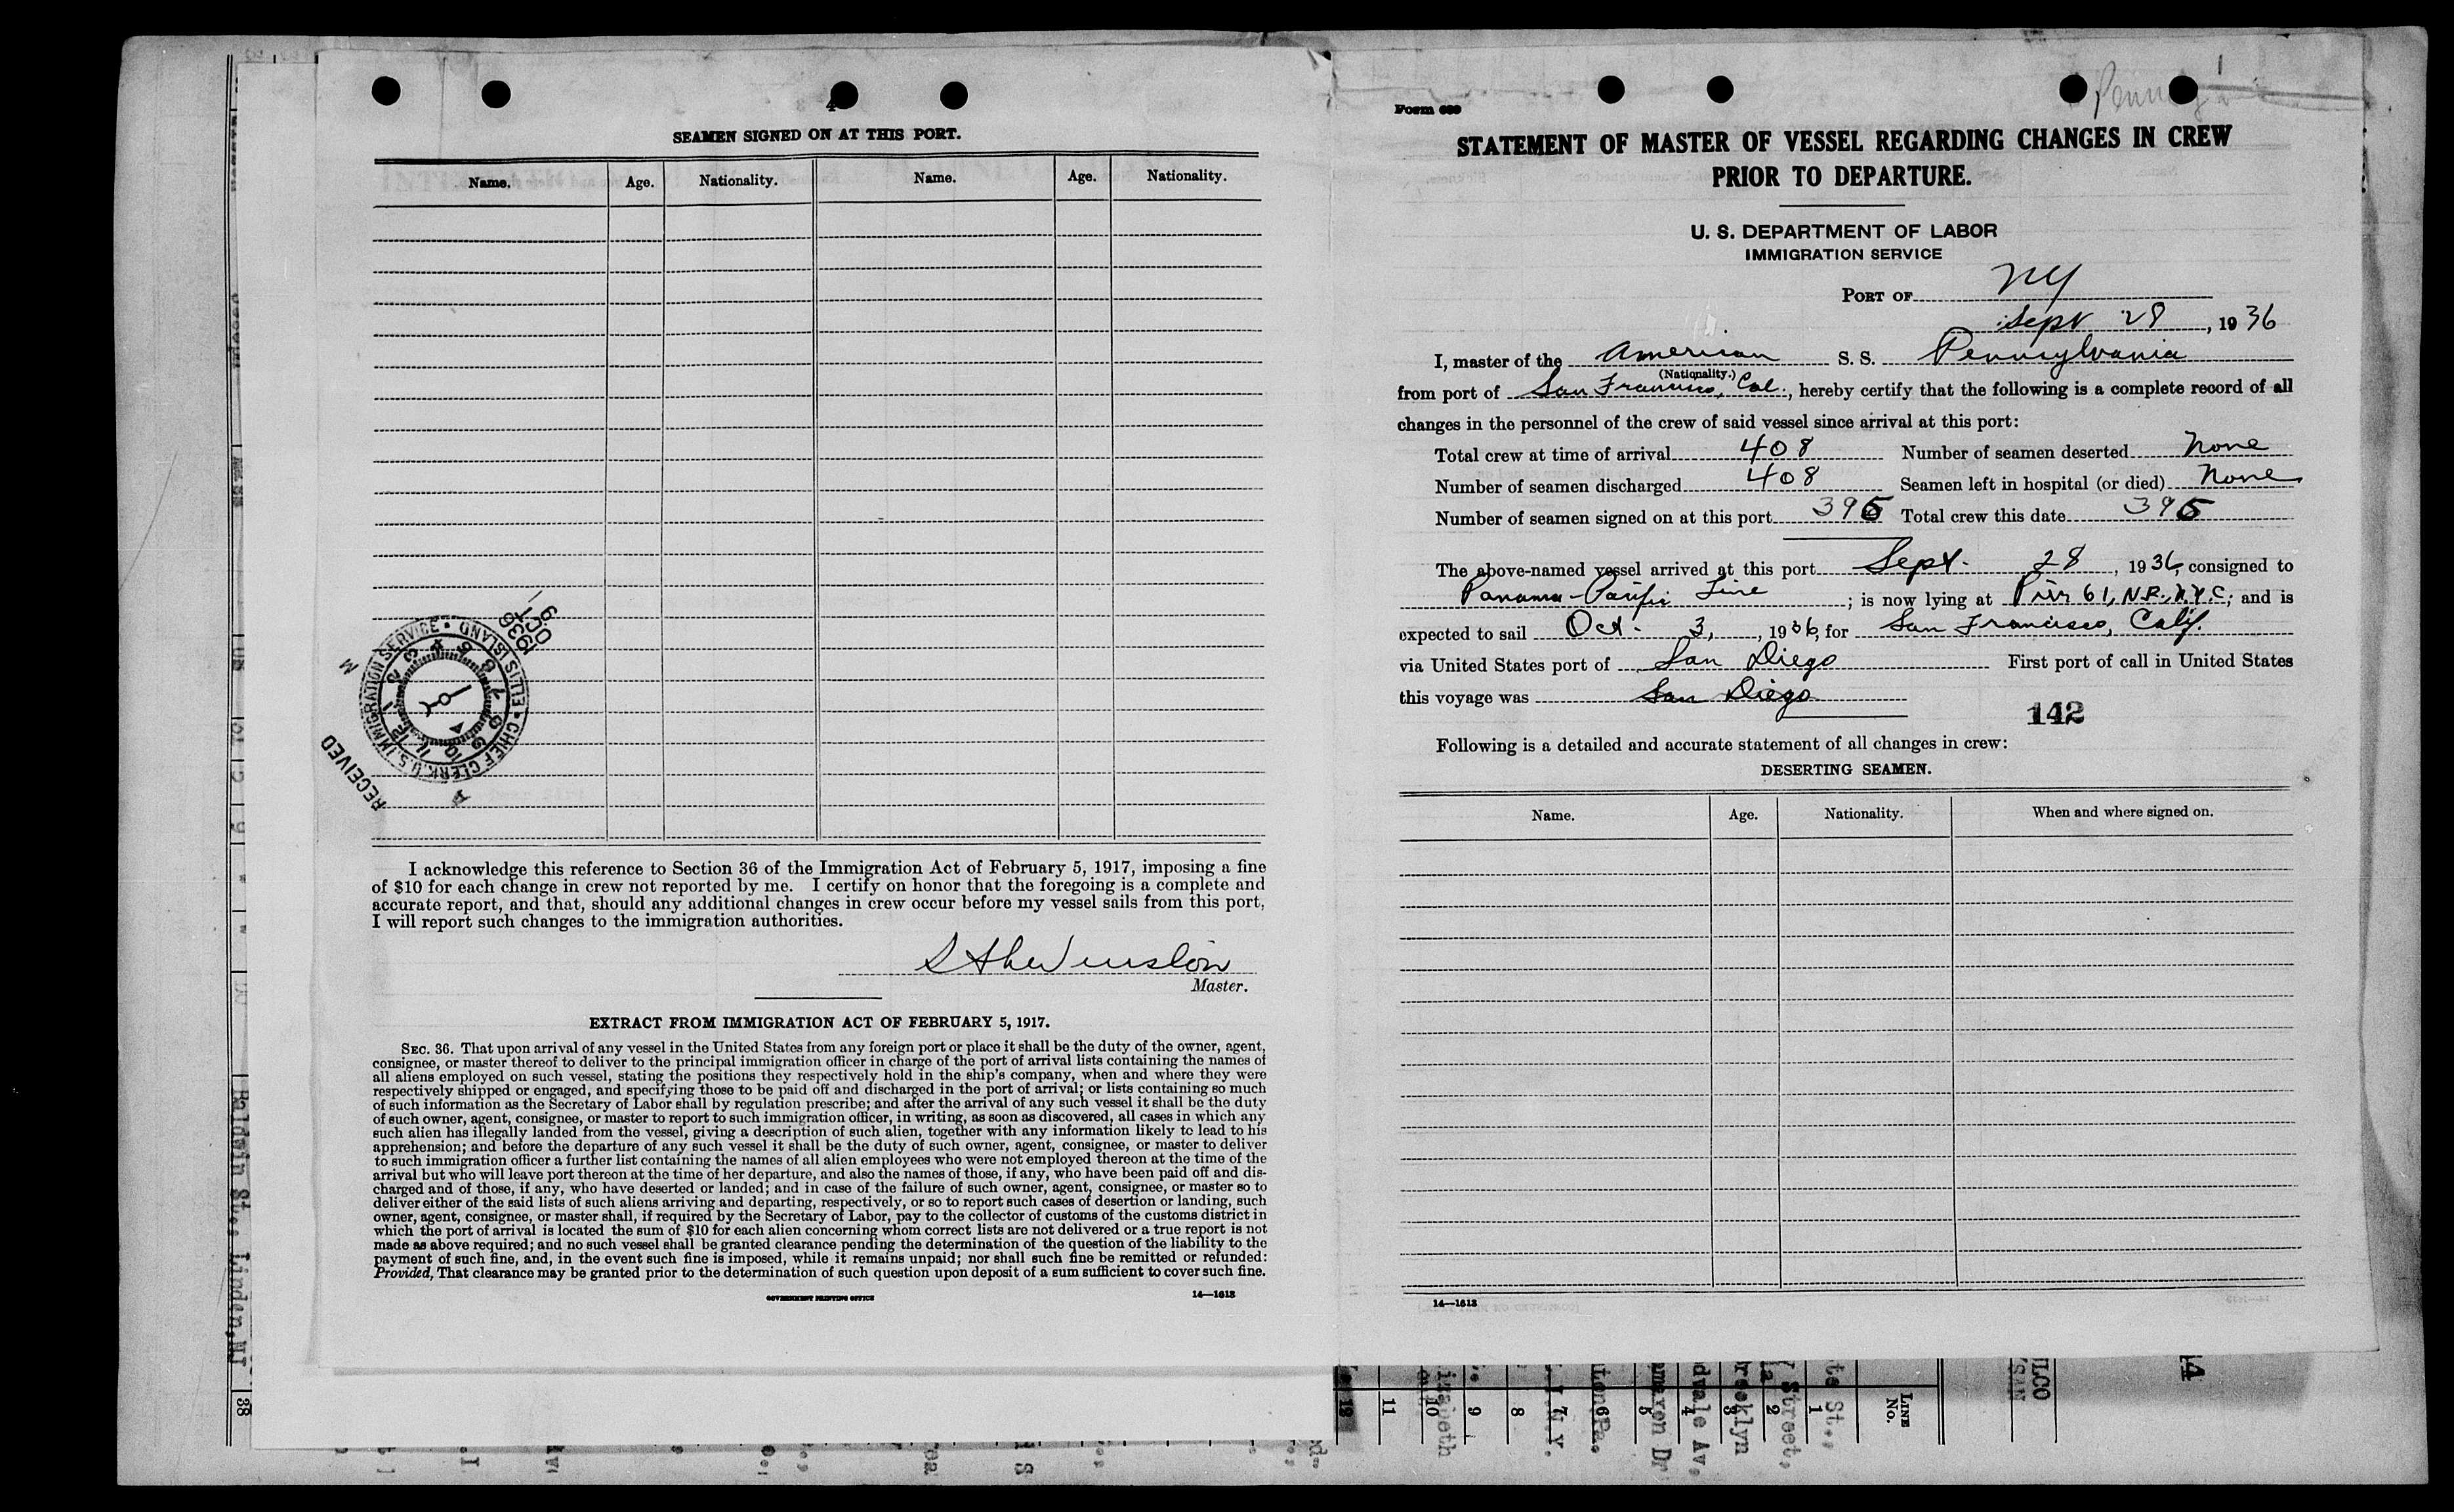 4
SEAMEN SIGNED ON AT THIS PORT.
Name. Age. Nationality. Name. Age. Nationality.
1936 OCT - 6.0
U.S. IMMIGRATION SERVICE • ELLIS ISLAND • CHIEF CLERK
1 2 3 4 5 6 7 8 9 10 11 12
M
A
RECEIVED
I acknowledge this reference to Section 36 of the Immigration Act of February 5, 1917, imposing a fine
of $10 for each change in crew not reported by me. I certify on honor that the foregoing is a complete and
accurate report, and that, should any additional changes in crew occur before my vessel sails from this port,
I will report such changes to the immigration authorities.
Master.
EXTRACT FROM IMMIGRATION ACT OF FEBRUARY 5, 1917.
SEC. 36. That upon arrival of any vessel in the United States from any foreign port or place it shall be the duty of the owner, agent,
consignee, or master thereof to deliver to the principal immigration officer in charge of the port of arrival lists containing the names of
all aliens employed on such vessel, stating the positions they respectively hold in the ship's company, when and where they were
respectively shipped or engaged, and specifying those to be paid off and discharged in the port of arrival; or lists containing so much
of such information as the Secretary of Labor shall by regulation prescribe; and after the arrival of any such vessel it shall be the duty
of such owner, agent, consignee, or master to report to such immigration officer, in writing, as soon as discovered, all cases in which any
such alien has illegally landed from the vessel, giving a description of such alien, together with any information likely to lead to his
apprehension; and before the departure of any such vessel it shall be the duty of such owner, agent, consignee, or master to deliver
to such immigration officer a further list containing the names of all alien employees who were not employed thereon at the time of the
arrival but who will leave port thereon at the time of her departure, and also the names of those, if any, who have been paid off and dis-
charged and of those, if any, who have deserted or landed; and in case of the failure of such owner, agent, consignee, or master so to
deliver either of the said lists of such aliens arriving and departing, respectively, or so to report such cases of desertion or landing, such
owner, agent, consignee, or master shall, if required by the Secretary of Labor, pay to the collector of customs of the customs district in
which the port of arrival is located the sum of $10 for each alien concerning whom correct lists are not delivered or a true report is not
made as above required; and no such vessel shall be granted clearance pending the determination of the question of the liability to the
payment of such fine, and, in the event such fine is imposed, while it remains unpaid; nor shall such fine be remitted or refunded:
Provided, That clearance may be granted prior to the determination of such question upon deposit of a sum sufficient to cover such fine.
GOVERNMENT PRINTING OFFICE 14—1613
Form 689
STATEMENT OF MASTER OF VESSEL REGARDING CHANGES IN CREW
PRIOR TO DEPARTURE.
U. S. DEPARTMENT OF LABOR
IMMIGRATION SERVICE
PORT OF NY
Sept 28, 1936
I, master of the American S. S. Pennsylvania
(Nationality.)
from port of San Francisco, Cal., hereby certify that the following is a complete record of all
changes in the personnel of the crew of said vessel since arrival at this port:
Total crew at time of arrival 408 Number of seamen deserted None
Number of seamen discharged 408 Seamen left in hospital (or died) None
Number of seamen signed on at this port 395 Total crew this date 395
The above-named vessel arrived at this port Sept. 28, 1936, consigned to
Panama-Pacific Line; is now lying at Pier 61, N.R., N.Y.C; and is
expected to sail Oct. 3, 1936, for San Francisco, Calif.
via United States port of San Diego First port of call in United States
this voyage was San Diego
142
Following is a detailed and accurate statement of all changes in crew:
DESERTING SEAMEN.
Name. Age. Nationality. When and where signed on.
14—1613
Baldwin St., Linden, NJ
38
LINE No.
1 2 3 4 5 6 7 8 9 10 11 12